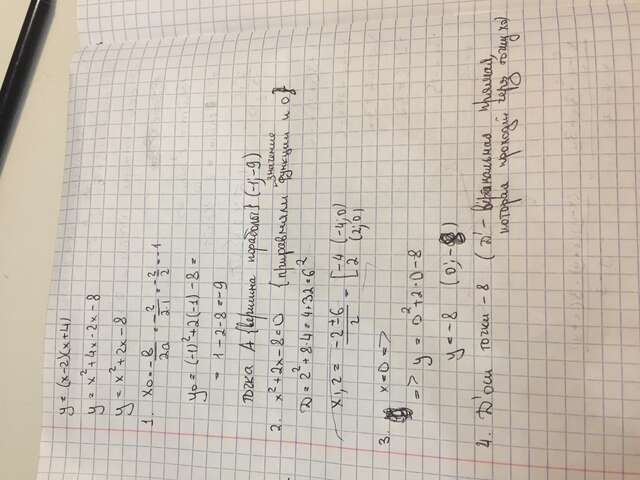 y = (x-2)(x+4)
y = x² + 4x - 2x - 8
y = x² + 2x - 8
1. x₀ = -в/2a = -2/2·1 = -2/2 = -1
y₀ = (-1)² + 2(-1) - 8 =
= 1 - 2 - 8 = -9
точка A {вершина параболы} (-1; -9)
2. x² + 2x - 8 = 0 {приравняли значение функции к 0}
D = 2² + 8·4 = 4 + 32 = 6²
x1,2 = -2±6/2 = [-4 (-4; 0)
2 (2; 0)
3. x = 0 =>
=> y = 0² + 2·0 - 8
y = -8 (0; -8)
4. D' оси точки -8 (D' - прямая,
которая проходит через точку x₀)